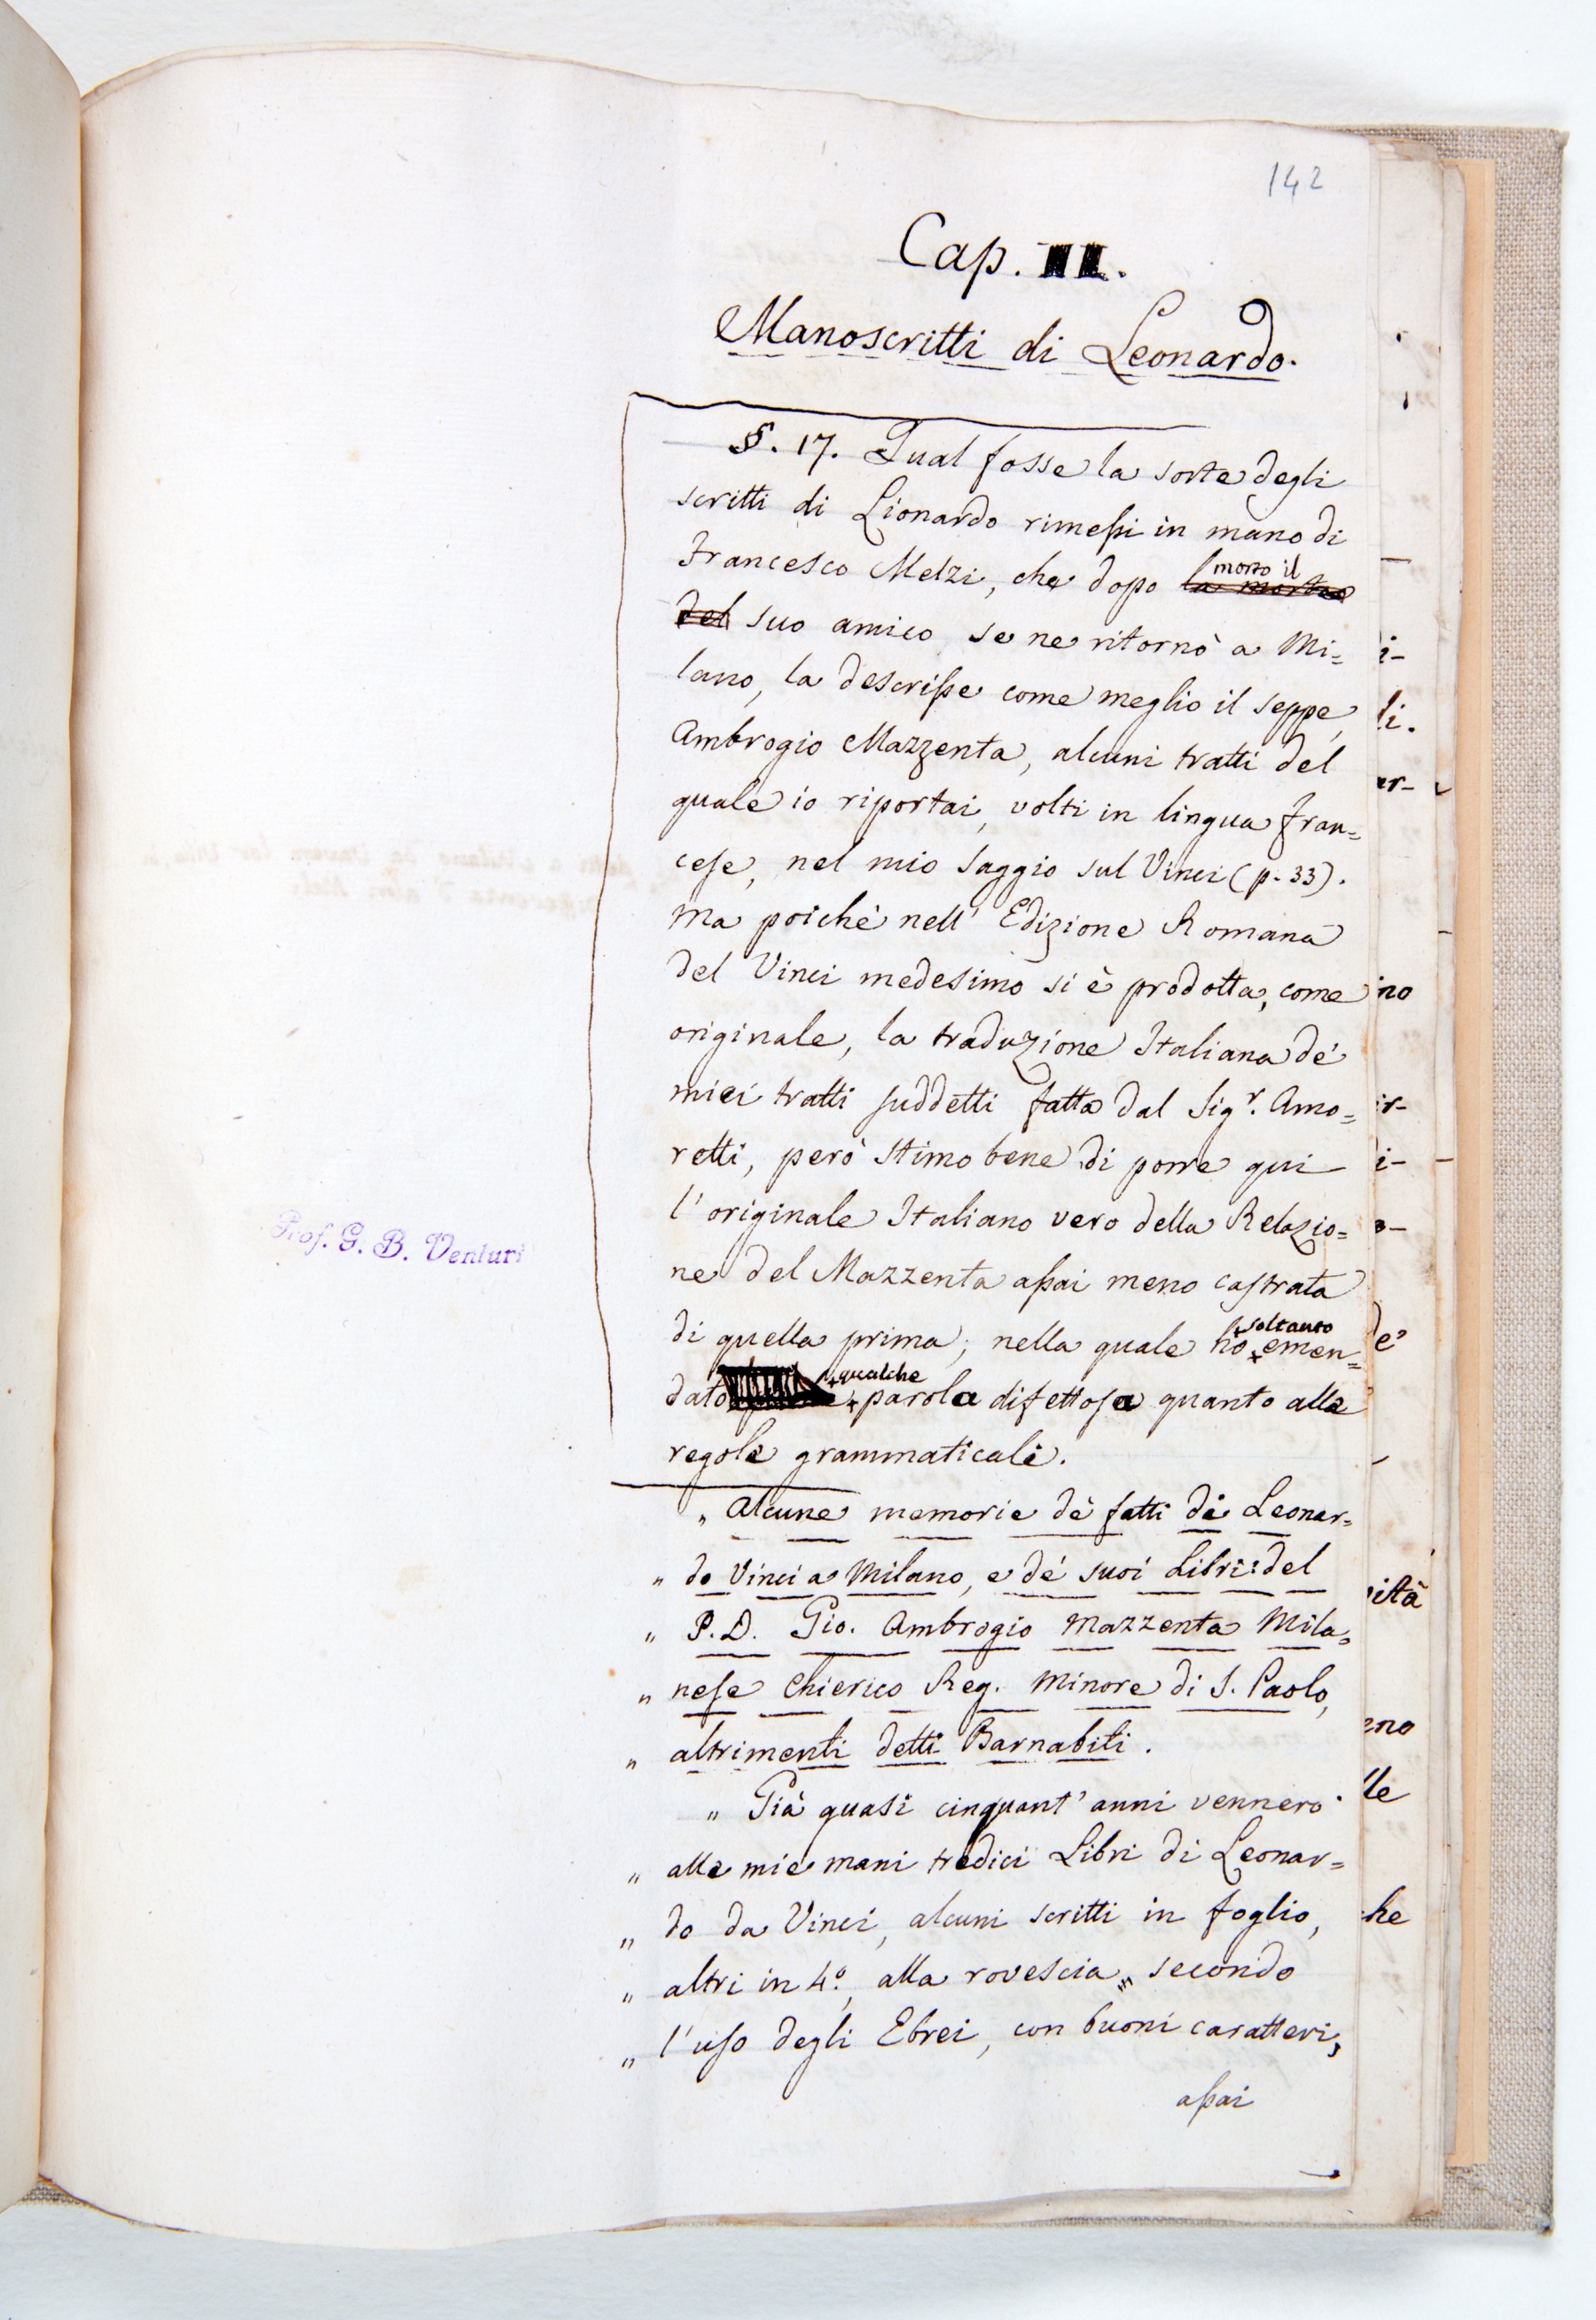 142
Cap. II.
Manoscritti di Leonardo.
§. 17. Qual fosse la sorte degli
scritti di Lionardo rimessi in mano di
Francesco Melzi, che dopo la morte morto il
del suo amico se ne ritornò a Mi=
lano, la descrisse come meglio il seppe,
Ambrogio Mazzenta, alcuni tratti del
quale io riportai, volti in lingua Fran=
cese, nel mio Saggio sul Vinci (p. 33).
Ma poichè nell' Edizione Romana
del Vinci medesimo si è prodotta, come
originale, la traduzione Italiana de'
miei tratti suddetti fatta dal Sigr. Amo=
retti, però stimo bene di porre qui
l'originale Italiano vero della Relazio=
ne del Mazzenta assai meno castrata
di quella prima; nella quale hò + soltanto emen=
dato + qualche parola difettosa quanto alle
regole grammaticali.
„ Alcune memorie de' fatti di Leonar=
„ do Vinci a Milano, e de' suoi Libri: del
„ P. D. Gio. Ambrogio Mazzenta Mila=
„ nese Chierico Reg. Minore di S. Paolo,
„ altrimenti detti Barnabiti.
„ Già quasi cinquant' anni vennero
„ alle mie mani tredici Libri di Leonar=
„ do da Vinci, alcuni scritti in foglio,
„ altri in 4º, alla rovescia, secondo
„ l'uso degli Ebrei, con buoni caratteri,
assai
Prof. G. B. Venturi